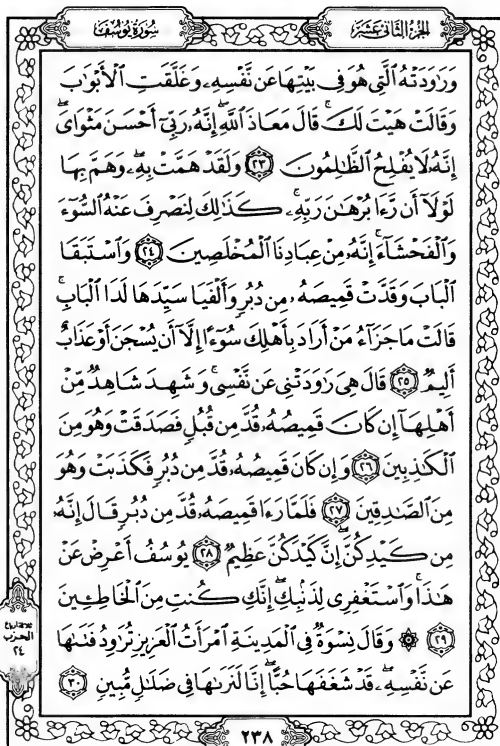 الجزء الثاني عشر
سورة يوسف
وَرَاوَدَتْهُ ٱلَّتِي هُوَ فِي بَيْتِهَا عَن نَّفْسِهِۦ وَغَلَّقَتِ ٱلْأَبْوَٰبَ
وَقَالَتْ هَيْتَ لَكَ ۚ قَالَ مَعَاذَ ٱللَّهِ ۖ إِنَّهُۥ رَبِّىٓ أَحْسَنَ مَثْوَاىَ ۖ
إِنَّهُۥ لَا يُفْلِحُ ٱلظَّٰلِمُونَ ٢٣ وَلَقَدْ هَمَّتْ بِهِۦ ۖ وَهَمَّ بِهَا
لَوْلَآ أَن رَّءَا بُرْهَٰنَ رَبِّهِۦ ۚ كَذَٰلِكَ لِنَصْرِفَ عَنْهُ ٱلسُّوٓءَ
وَٱلْفَحْشَآءَ ۚ إِنَّهُۥ مِنْ عِبَادِنَا ٱلْمُخْلَصِينَ ٢٤ وَٱسْتَبَقَا
ٱلْبَابَ وَقَدَّتْ قَمِيصَهُۥ مِن دُبُرٍ وَأَلْفَيَا سَيِّدَهَا لَدَا ٱلْبَابِ ۚ
قَالَتْ مَا جَزَآءُ مَنْ أَرَادَ بِأَهْلِكَ سُوٓءًا إِلَّآ أَن يُسْجَنَ أَوْ عَذَابٌ
أَلِيمٌ ٢٥ قَالَ هِىَ رَٰوَدَتْنِى عَن نَّفْسِى ۚ وَشَهِدَ شَاهِدٌ مِّنْ
أَهْلِهَآ إِن كَانَ قَمِيصُهُۥ قُدَّ مِن قُبُلٍ فَصَدَقَتْ وَهُوَ مِنَ
ٱلْكَٰذِبِينَ ٢٦ وَإِن كَانَ قَمِيصُهُۥ قُدَّ مِن دُبُرٍ فَكَذَبَتْ وَهُوَ
مِنَ ٱلصَّٰدِقِينَ ٢٧ فَلَمَّا رَءَا قَمِيصَهُۥ قُدَّ مِن دُبُرٍ قَالَ إِنَّهُۥ
مِن كَيْدِكُنَّ ۖ إِنَّ كَيْدَكُنَّ عَظِيمٌ ٢٨ يُوسُفُ أَعْرِضْ عَنْ
هَٰذَا ۚ وَٱسْتَغْفِرِى لِذَنۢبِكِ ۖ إِنَّكِ كُنتِ مِنَ ٱلْخَاطِـِٔينَ
٢٩ ۞ وَقَالَ نِسْوَةٌ فِى ٱلْمَدِينَةِ ٱمْرَأَتُ ٱلْعَزِيزِ تُرَٰوِدُ فَتَىٰهَا
عَن نَّفْسِهِۦ ۖ قَدْ شَغَفَهَا حُبًّا ۖ إِنَّا لَنَرَىٰهَا فِى ضَلَٰلٍ مُّبِينٍ ٣٠
ثلاثة أرباع
الحزب
٢٤
٢٣٨